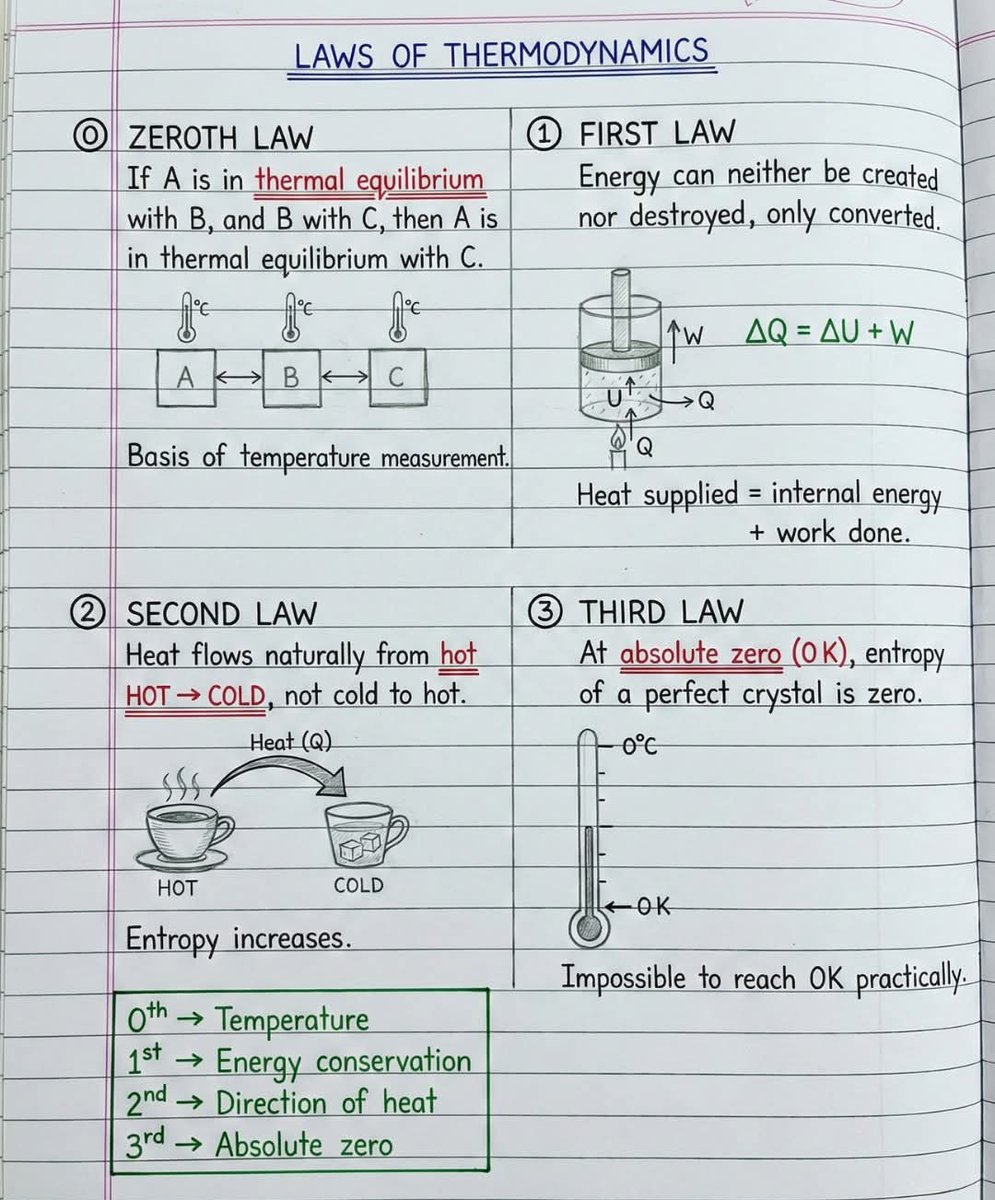 LAWS OF THERMODYNAMICS
0 ZEROTH LAW
If A is in thermal equilibrium
with B, and B with C, then A is
in thermal equilibrium with C.
°C °C °C
A B C
Basis of temperature measurement.
1 FIRST LAW
Energy can neither be created
nor destroyed, only converted.
W ΔQ = ΔU + W
U Q
Q
Heat supplied = internal energy
+ work done.
2 SECOND LAW
Heat flows naturally from hot
HOT → COLD, not cold to hot.
Heat (Q)
HOT COLD
Entropy increases.
3 THIRD LAW
At absolute zero (0 K), entropy
of a perfect crystal is zero.
0°C
←0 K
Impossible to reach 0K practically.
0th → Temperature
1st → Energy conservation
2nd → Direction of heat
3rd → Absolute zero